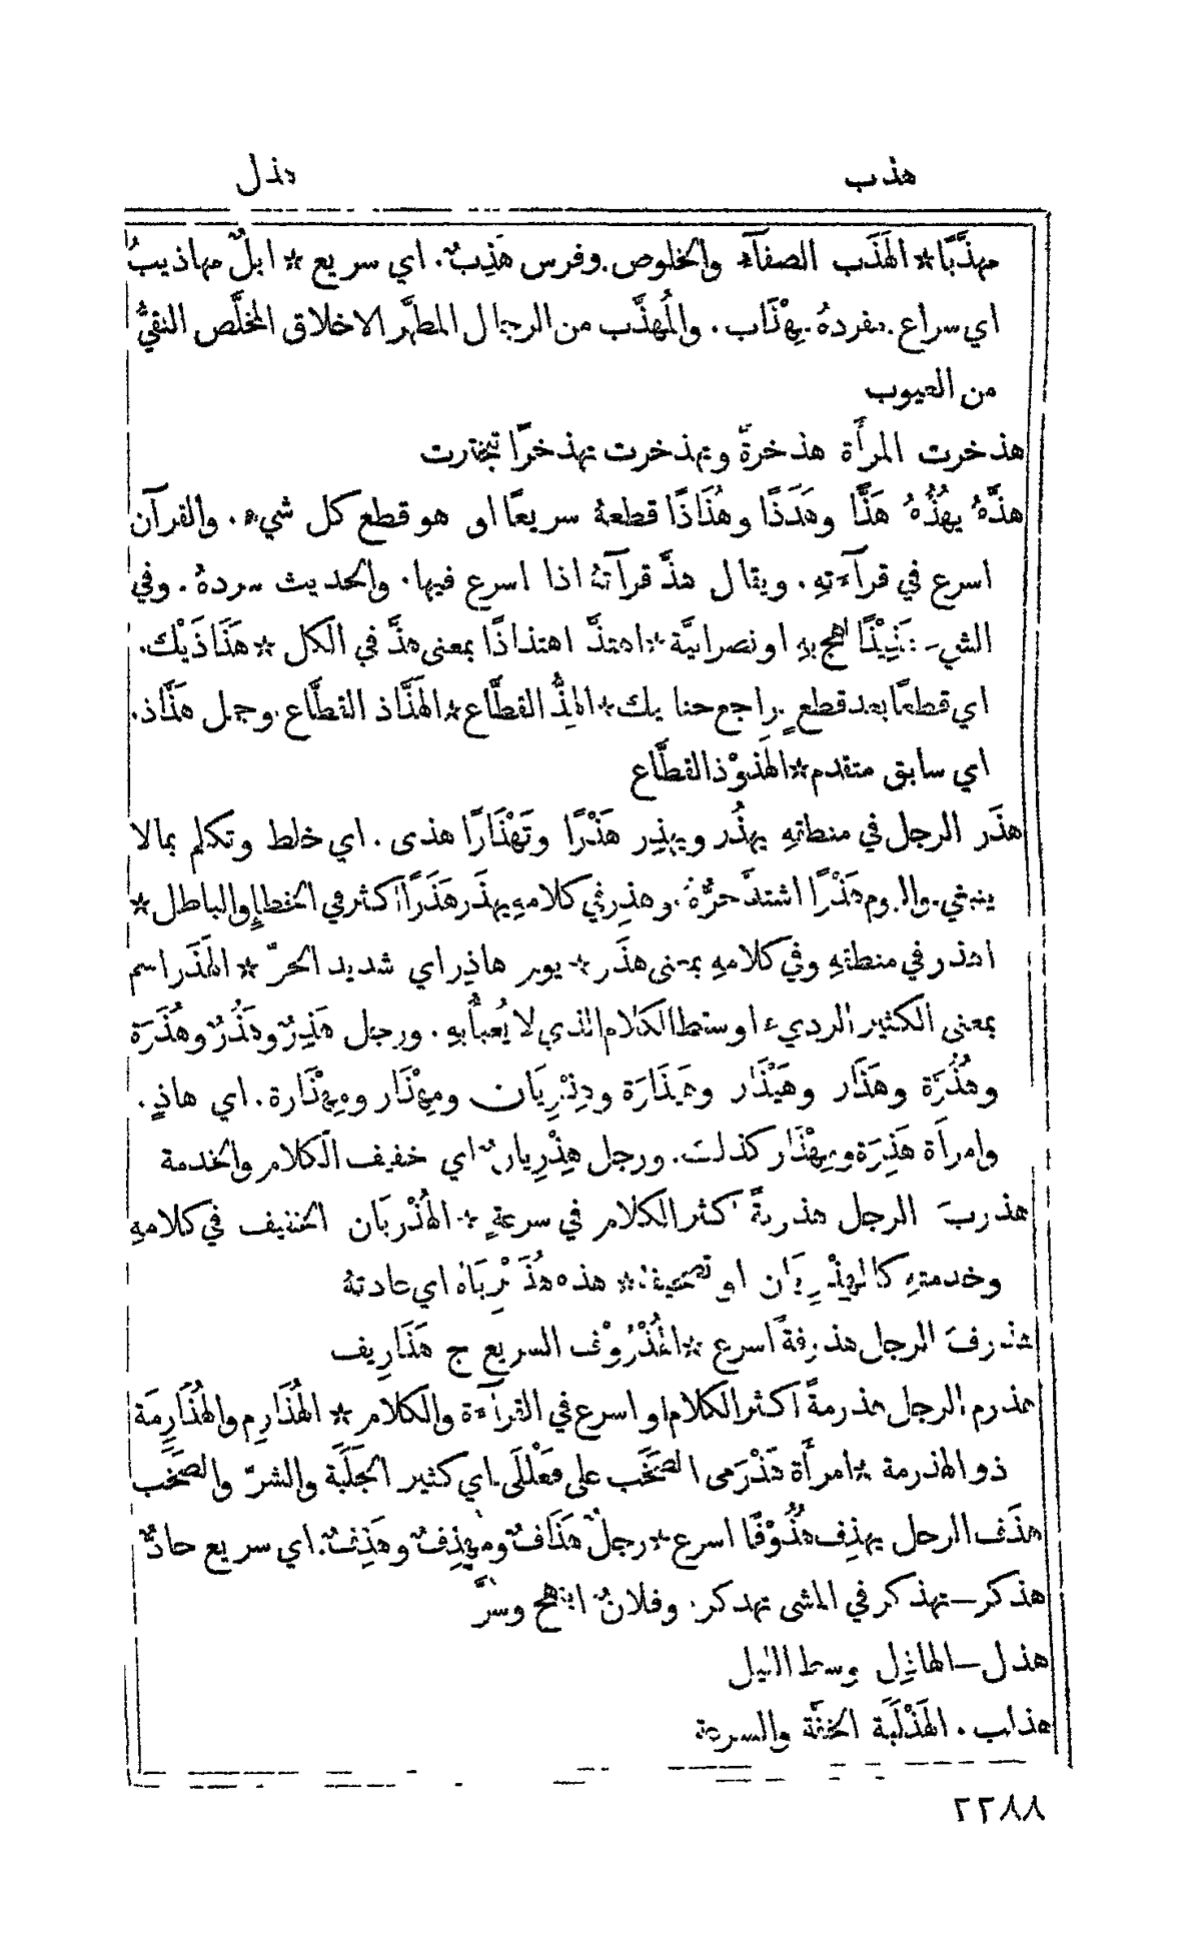 هذب
هذل
مهذَّبًا * الهَذَب الصفآء والخلوص. وفرس هَذِبٌ. اي سريع * ابلٌ مهاذيبُ
اي سراع. مفردهُ مِهْذَاب. والمُهذَّب من الرجال المطهَّر الاخلاق المخلَّص النقيُّ
من العيوب
هذخرت المرأَة هذخرةً وتهذخرت تهذخرًا تبخترت
هذَّهُ يهُذُّهُ هَذًّا وهَذَذًا وهُذَاذًا قطعهُ سريعًا او هو قطع كل شيء. والقرآن
اسرع في قرآءتهِ. ويقال هذَّ قرآتهُ اذا اسرع فيها. والحديث سردهُ. وفي
الشيء لهج بهِ او نصرانيَّة * اهتذَّ اهتذاذًا بمعنى هذَّ في الكل * هَذَاذَيْك.
اي قطعًا بعد قطعٍ. راجع حنانيك * الهِذُّ القطَّاع * الهَذَّاذ القطَّاع. وجمل هذَّاذ.
اي سابق متقدم * الهَذوْذ القطَّاع
هذَر الرجل في منطقهِ يهذُر ويهذِر هَذْرًا وتَهْذَارًا هذى. اي خلط وتكلم بما لا
ينبغي. واليوم هَذْرًا اشتدَّ حرُّهُ. وهذِر في كلامهِ يهذَر هَذَرًا اكثر في الخطإِ والباطل *
اهذر في منطقهِ وفي كلامهِ بمعنى هذَر * يوم هاذِر اي شديد الحرّ * الهَذَر اسم
بمعنى الكثير الرديء او سقط الكلام الذي لا يُعبأُ بهِ. ورجل هَذِرٌ وهَذُرٌ وهُذَرَة
وهُذُرَّة وهَذَّار وهَيْذَار وهَيْذَارَة وهِذْرِيَان ومِهْذَار ومِهْذَارة. اي هاذٍ.
وامرأَة هَذِرَة ومِهْذَار كذلك. ورجل هِذْرِيانٌ اي خفيف الكلام والخدمة
هذربَ الرجل هذربةً كثر الكلام في سرعةٍ * الهُذْرُبَان الخفيف في كلامهِ
وخدمتهِ كالهِذْرِيَان او تصحيفهُ * هذه هُذَيْرِبَاهُ اي عادتهُ
هذرفَ الرجل هذرفةً اسرع * الهُذْرُوْف السريع ج هَذَارِيف
هذرم الرجل هذرمةً اكثر الكلام او اسرع في القرآءة والكلام * الهُذَارِم والهُذَارِمَة
ذو الهذرمة * امرأَة هَذْرَمى الصَّخَب على فَعْلَلَى اي كثير الجَلَبَة والشرّ والصَّخَب
هذَف الرجل يهذِف هُذُوْفًا اسرع * رجلٌ هَذَّافٌ ومُهذِفٌ وهَذِفٌ. اي سريع حادٌّ
هذكر – تهذكر في المشى تهدكر. وفلانٌ ابتهج وسرَّ
هذل – الهاذِل وسط الليل
هذلب. الهَذْلَبَة الخفَّة والسرعة
٢٢٨٨